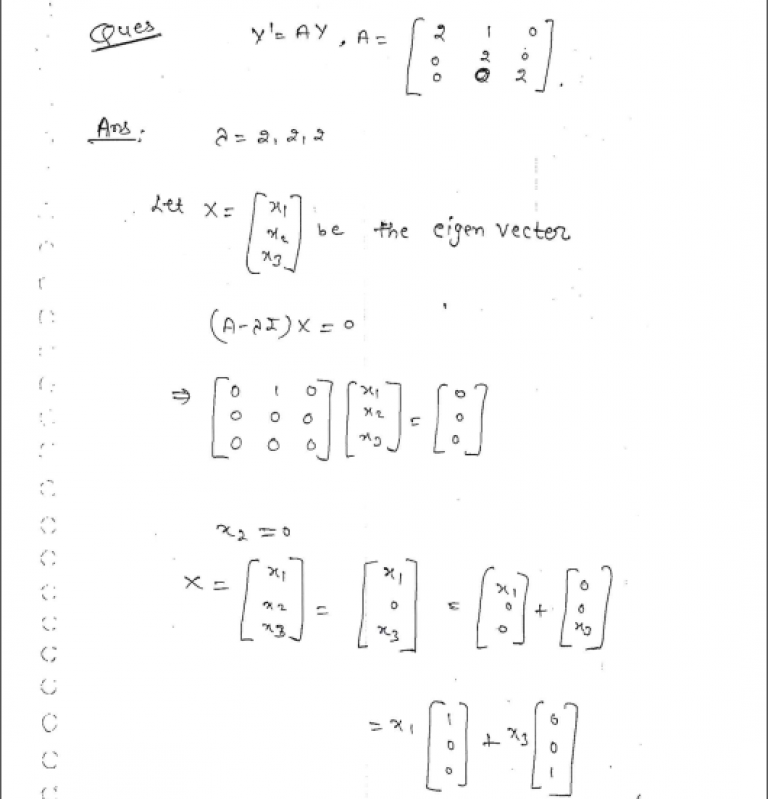 Ques Y' = AY , A = [ 2 1 0
0 2 0
0 0 2 ] .
Ans: λ = 2, 2, 2
Let X = [ x1
x2
x3 ] be the eigen vector
(A-λI) X = 0
⇒ [ 0 1 0
0 0 0
0 0 0 ] [ x1
x2
x3 ] = [ 0
0
0 ]
x2 = 0
X = [ x1
x2
x3 ] = [ x1
0
x3 ] = [ x1
0
0 ] + [ 0
0
x3 ]
= x1 [ 1
0
0 ] + x3 [ 0
0
1 ]